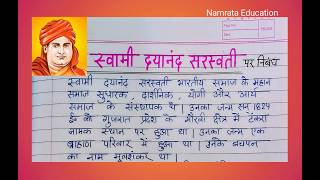 Namrata Education
स्वामी दयानंद सरस्वती पर निबंध
स्वामी दयानंद सरस्वती भारतीय समाज के महान
समाज सुधारक, दार्शनिक, योगी और आर्य
समाज के संस्थापक थे। उनका जन्म सन् 1824
ई० को गुजरात प्रदेश के मौरवी क्षेत्र में टंकरा
नामक स्थान पर हुआ था। उनका जन्म एक
ब्राह्मण परिवार में हुआ था। उनके बचपन
का नाम मूलशंकर था।